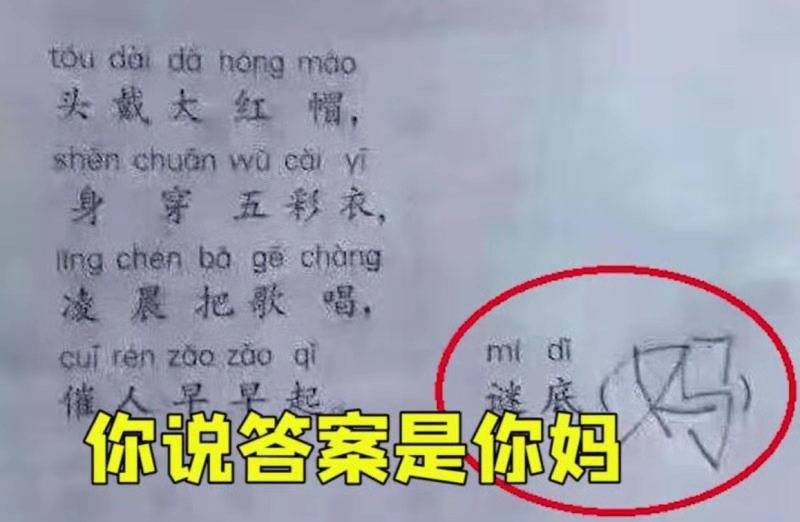 tóu dài dà hóng mào
头戴大红帽，
shēn chuān wǔ cǎi yī
身穿五彩衣，
líng chén bǎ gē chàng
凌晨把歌唱，
cuī rén zǎo zǎo qǐ
催人早早起。
mí dǐ
谜底（妈）
你说答案是你妈